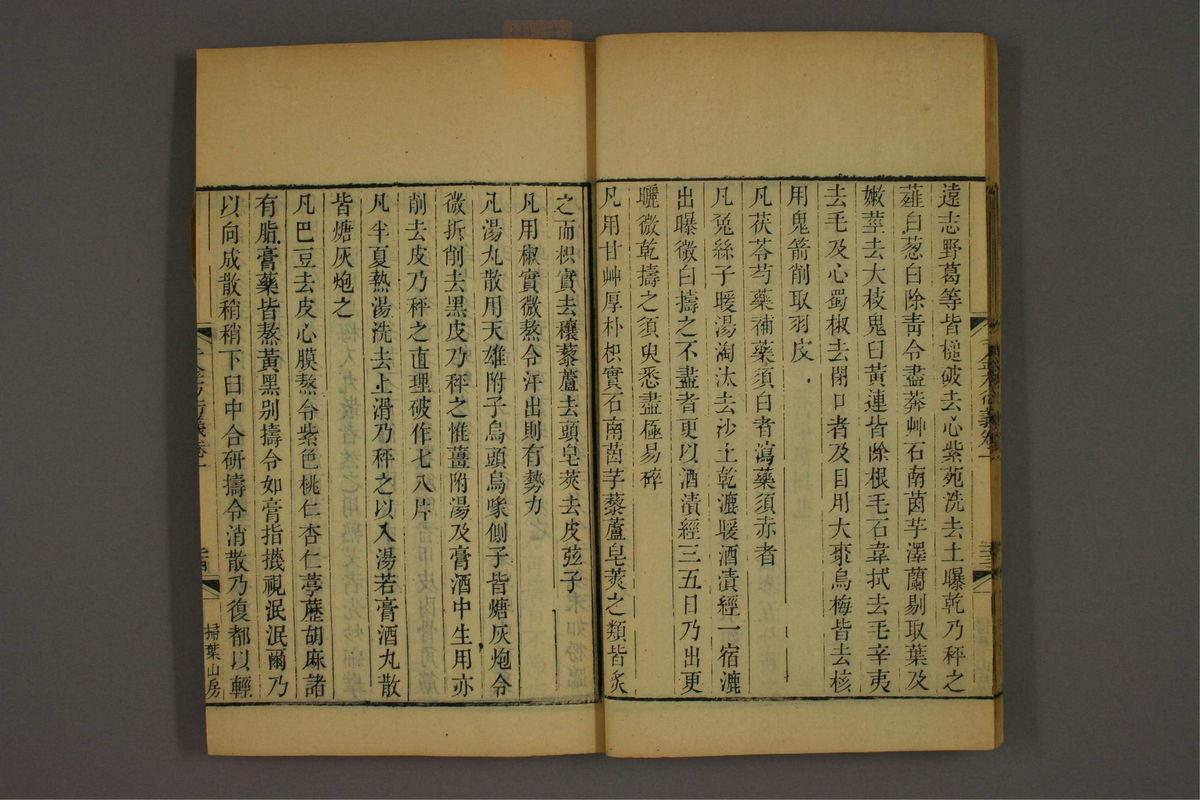 遠志野葛等皆槌破去心紫菀洗去土曝乾乃秤之
薤白葱白除青令盡莽艸石南茵芋澤蘭剔取葉及
嫩莖去大枝鬼臼黃連皆除根毛石韋拭去毛辛夷
去毛及心蜀椒去閉口者及目用大棗烏梅皆去核
用鬼箭削取羽皮
凡茯苓芍藥補藥須白者瀉藥須赤者
凡兔絲子暖湯淘汰去沙土乾漉暖酒漬經一宿漉
出曝微白擣之不盡者更以酒漬經三五日乃出更
曬微乾擣之須臾悉盡極易碎
凡用甘艸厚朴枳實石南茵芋藜蘆皂莢之類皆炙
之而枳實去穰藜蘆去頭皂莢去皮弦子
凡用椒實微熬令汗出則有勢力
凡湯丸散用天雄附子烏頭烏喙側子皆煻灰炮令
微拆削去黑皮乃秤之惟薑附湯及膏酒中生用亦
削去皮乃秤之直理破作七八片
凡半夏熱湯洗去上滑乃秤之以入湯若膏酒丸散
皆煻灰炮之
凡巴豆去皮心膜熬令紫色桃仁杏仁葶藶胡麻諸
有脂膏藥皆熬黃黑別擣令如膏指㩢視泯泯爾乃
以向成散稍稍下臼中合研擣令消散乃復都以輕
掃葉山房